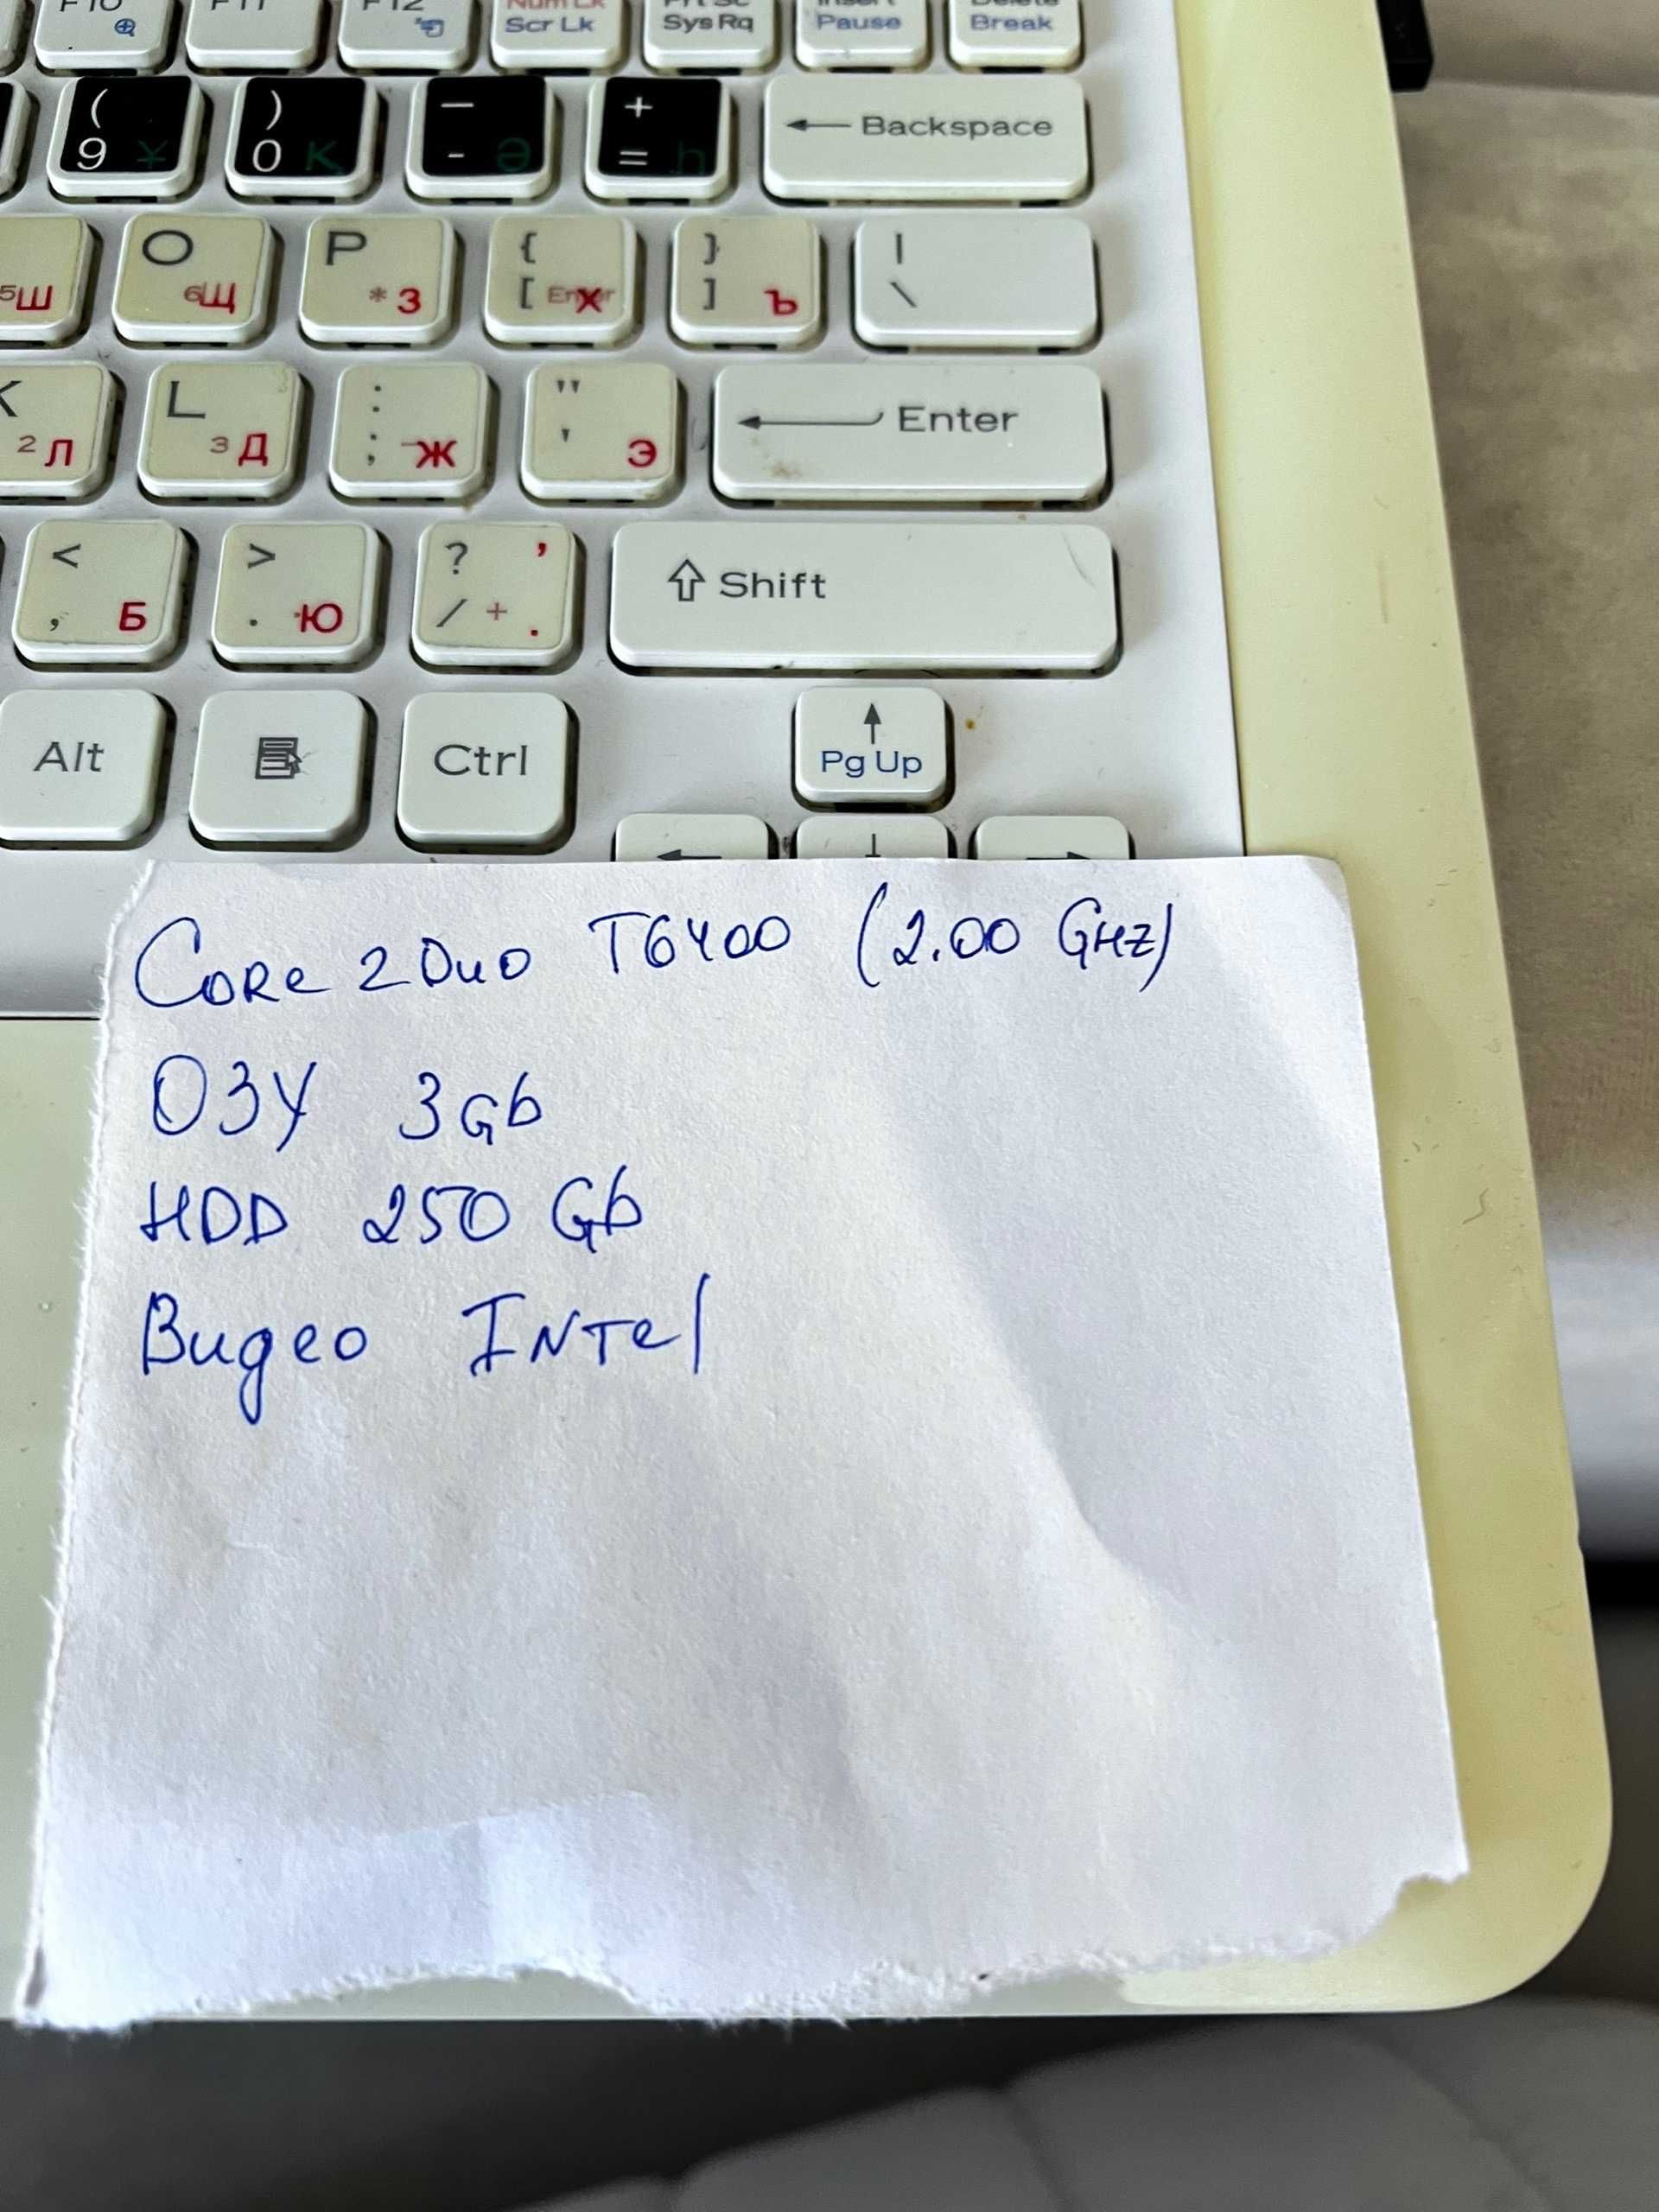 F10 F11 F12 Num Lk Scr Lk Prt Sc Sys Rq Insert Pause Delete Break
( 9 ¥ ) 0 Қ — - Ә + = һ Backspace
5 Ш O 6 Щ P * З { [ Enter Х } ] Ъ | \
K 2 Л L 3 Д : ; - Ж " ' Э Enter
< , Б > . Ю ? / + , . Shift
Alt Ctrl Pg Up
Core 2 Duo T6400 (2.00 GHz)
ОЗУ 3Gb
HDD 250 Gb
Видео Intel